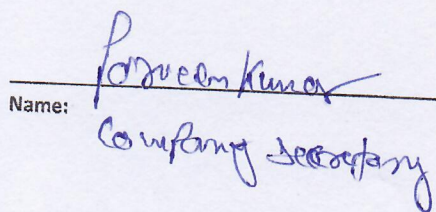 Parveen Kumar
Name:
Company Secretary